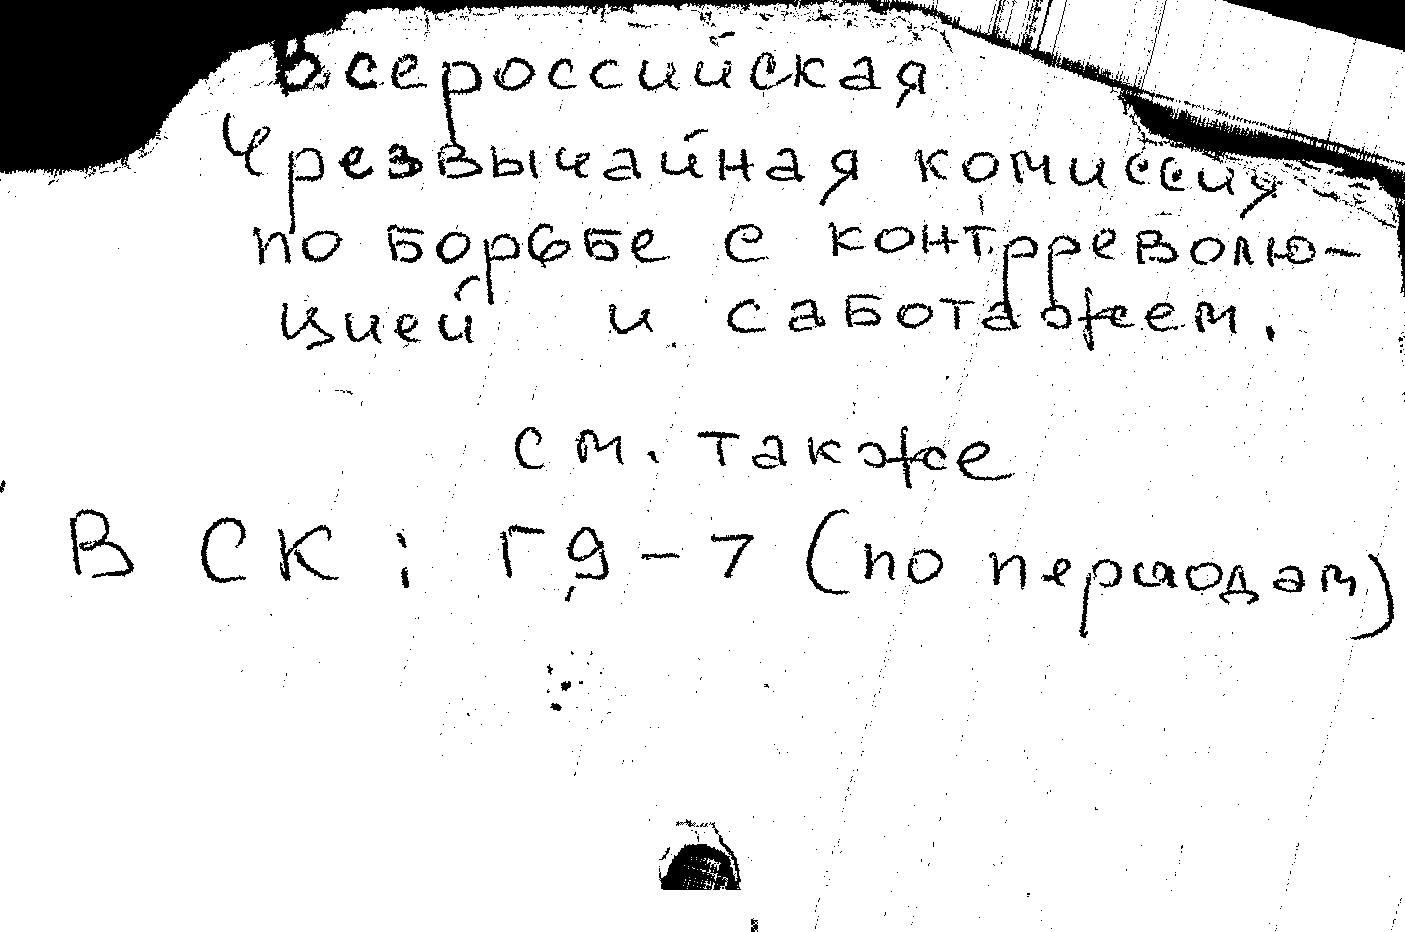 Всероссийская
Чрезвычайная комиссия
по борьбе с контрреволю-
цией и саботажем.
см. также
В СК: Г9-7 (по периодам)